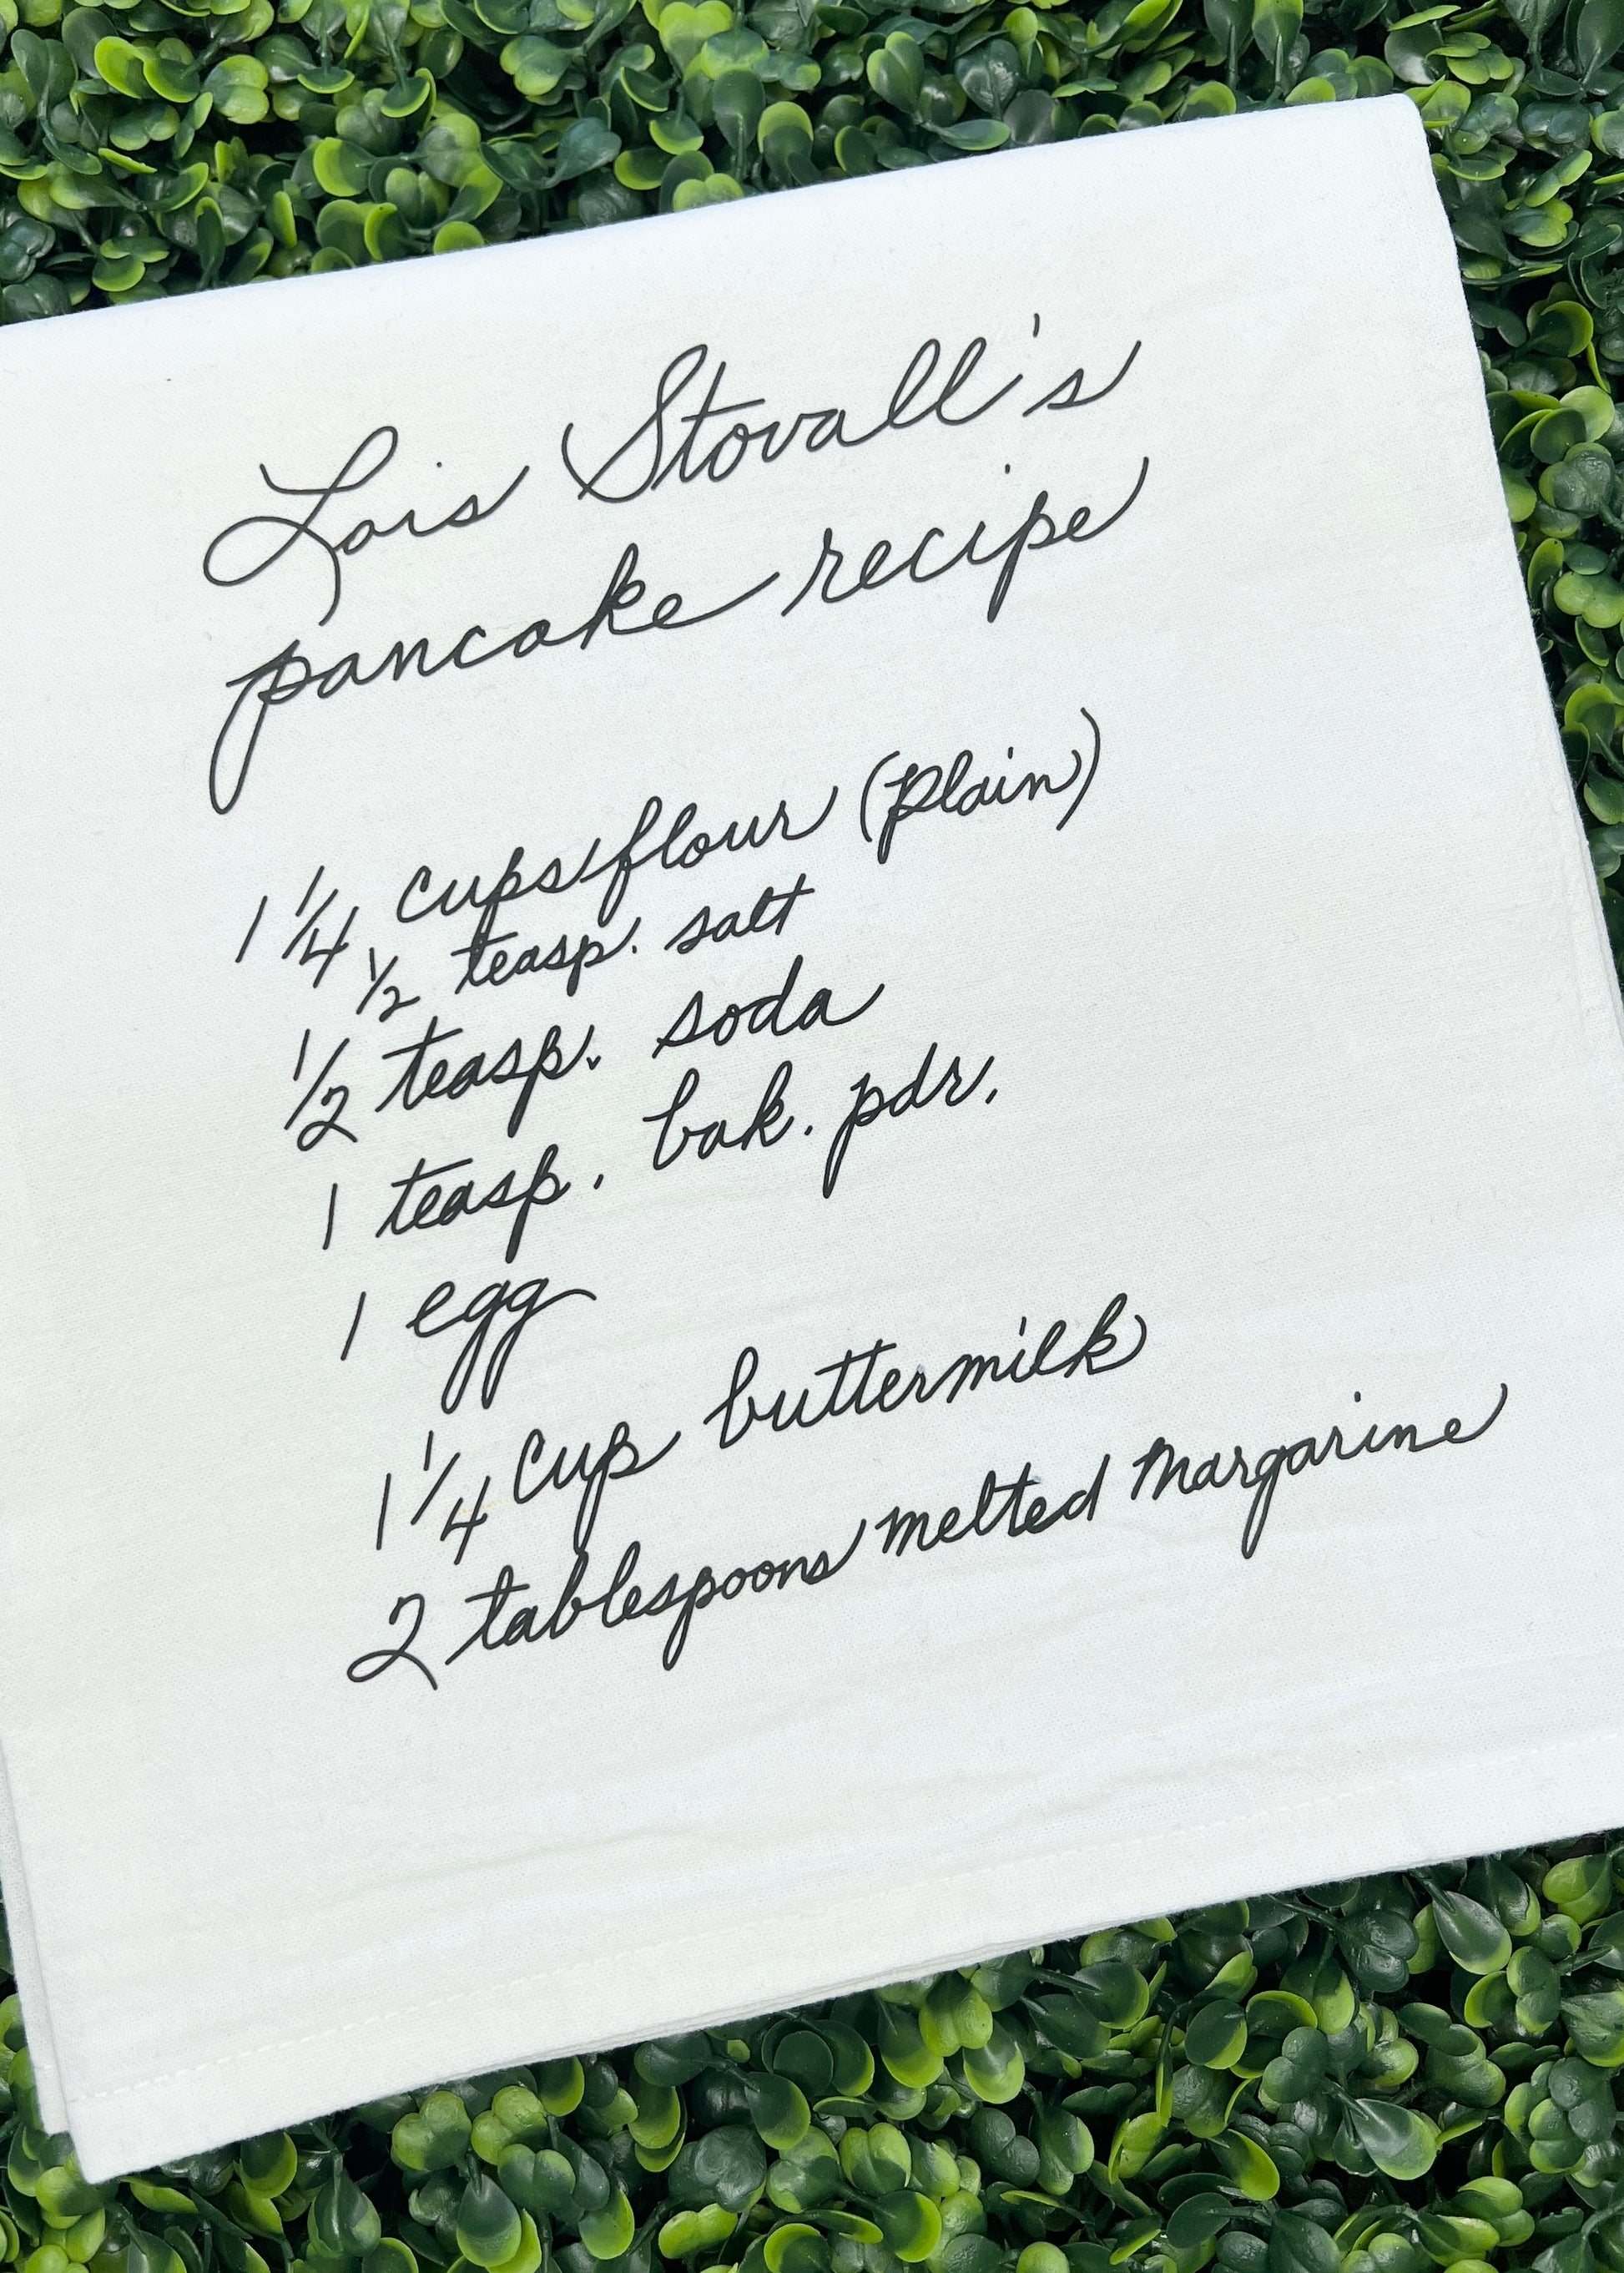 Lois Stovall's
pancake recipe
1 1/4 cups flour (plain)
1/2 teasp. salt
1/2 teasp. soda
1 teasp. bak. pdr.
1 egg
1 1/4 cup buttermilk
2 tablespoons melted margarine